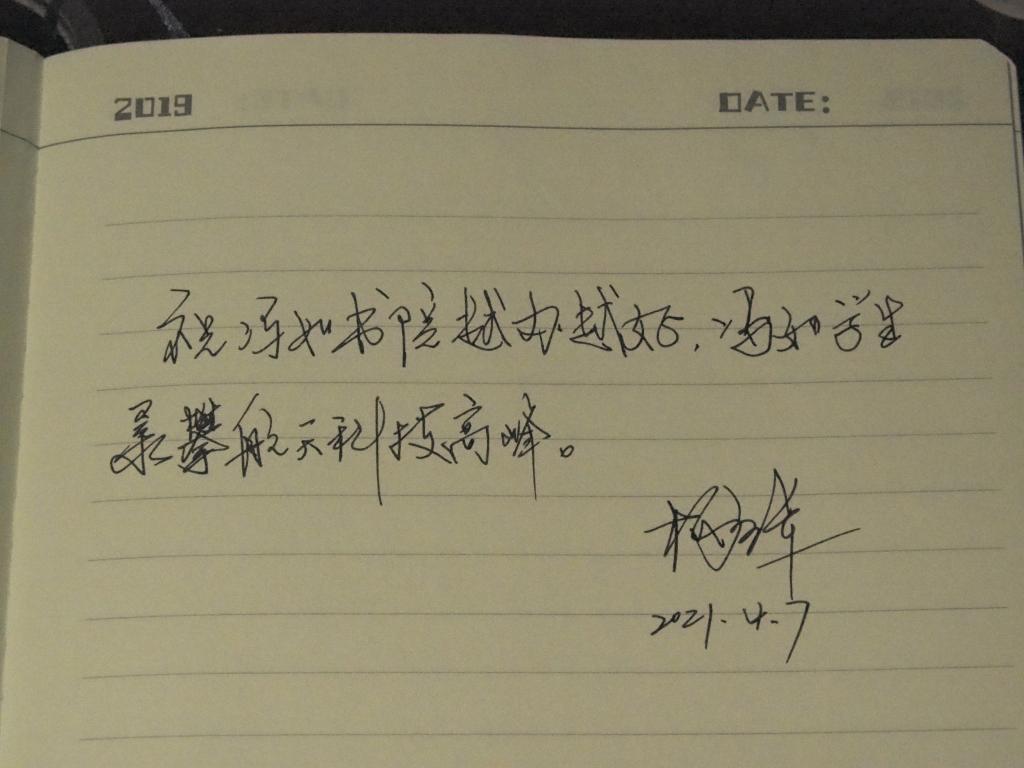 2019 DATE:
祝冯如书院越办越好,冯如学生
勇攀航天科技高峰。
2021.4.7